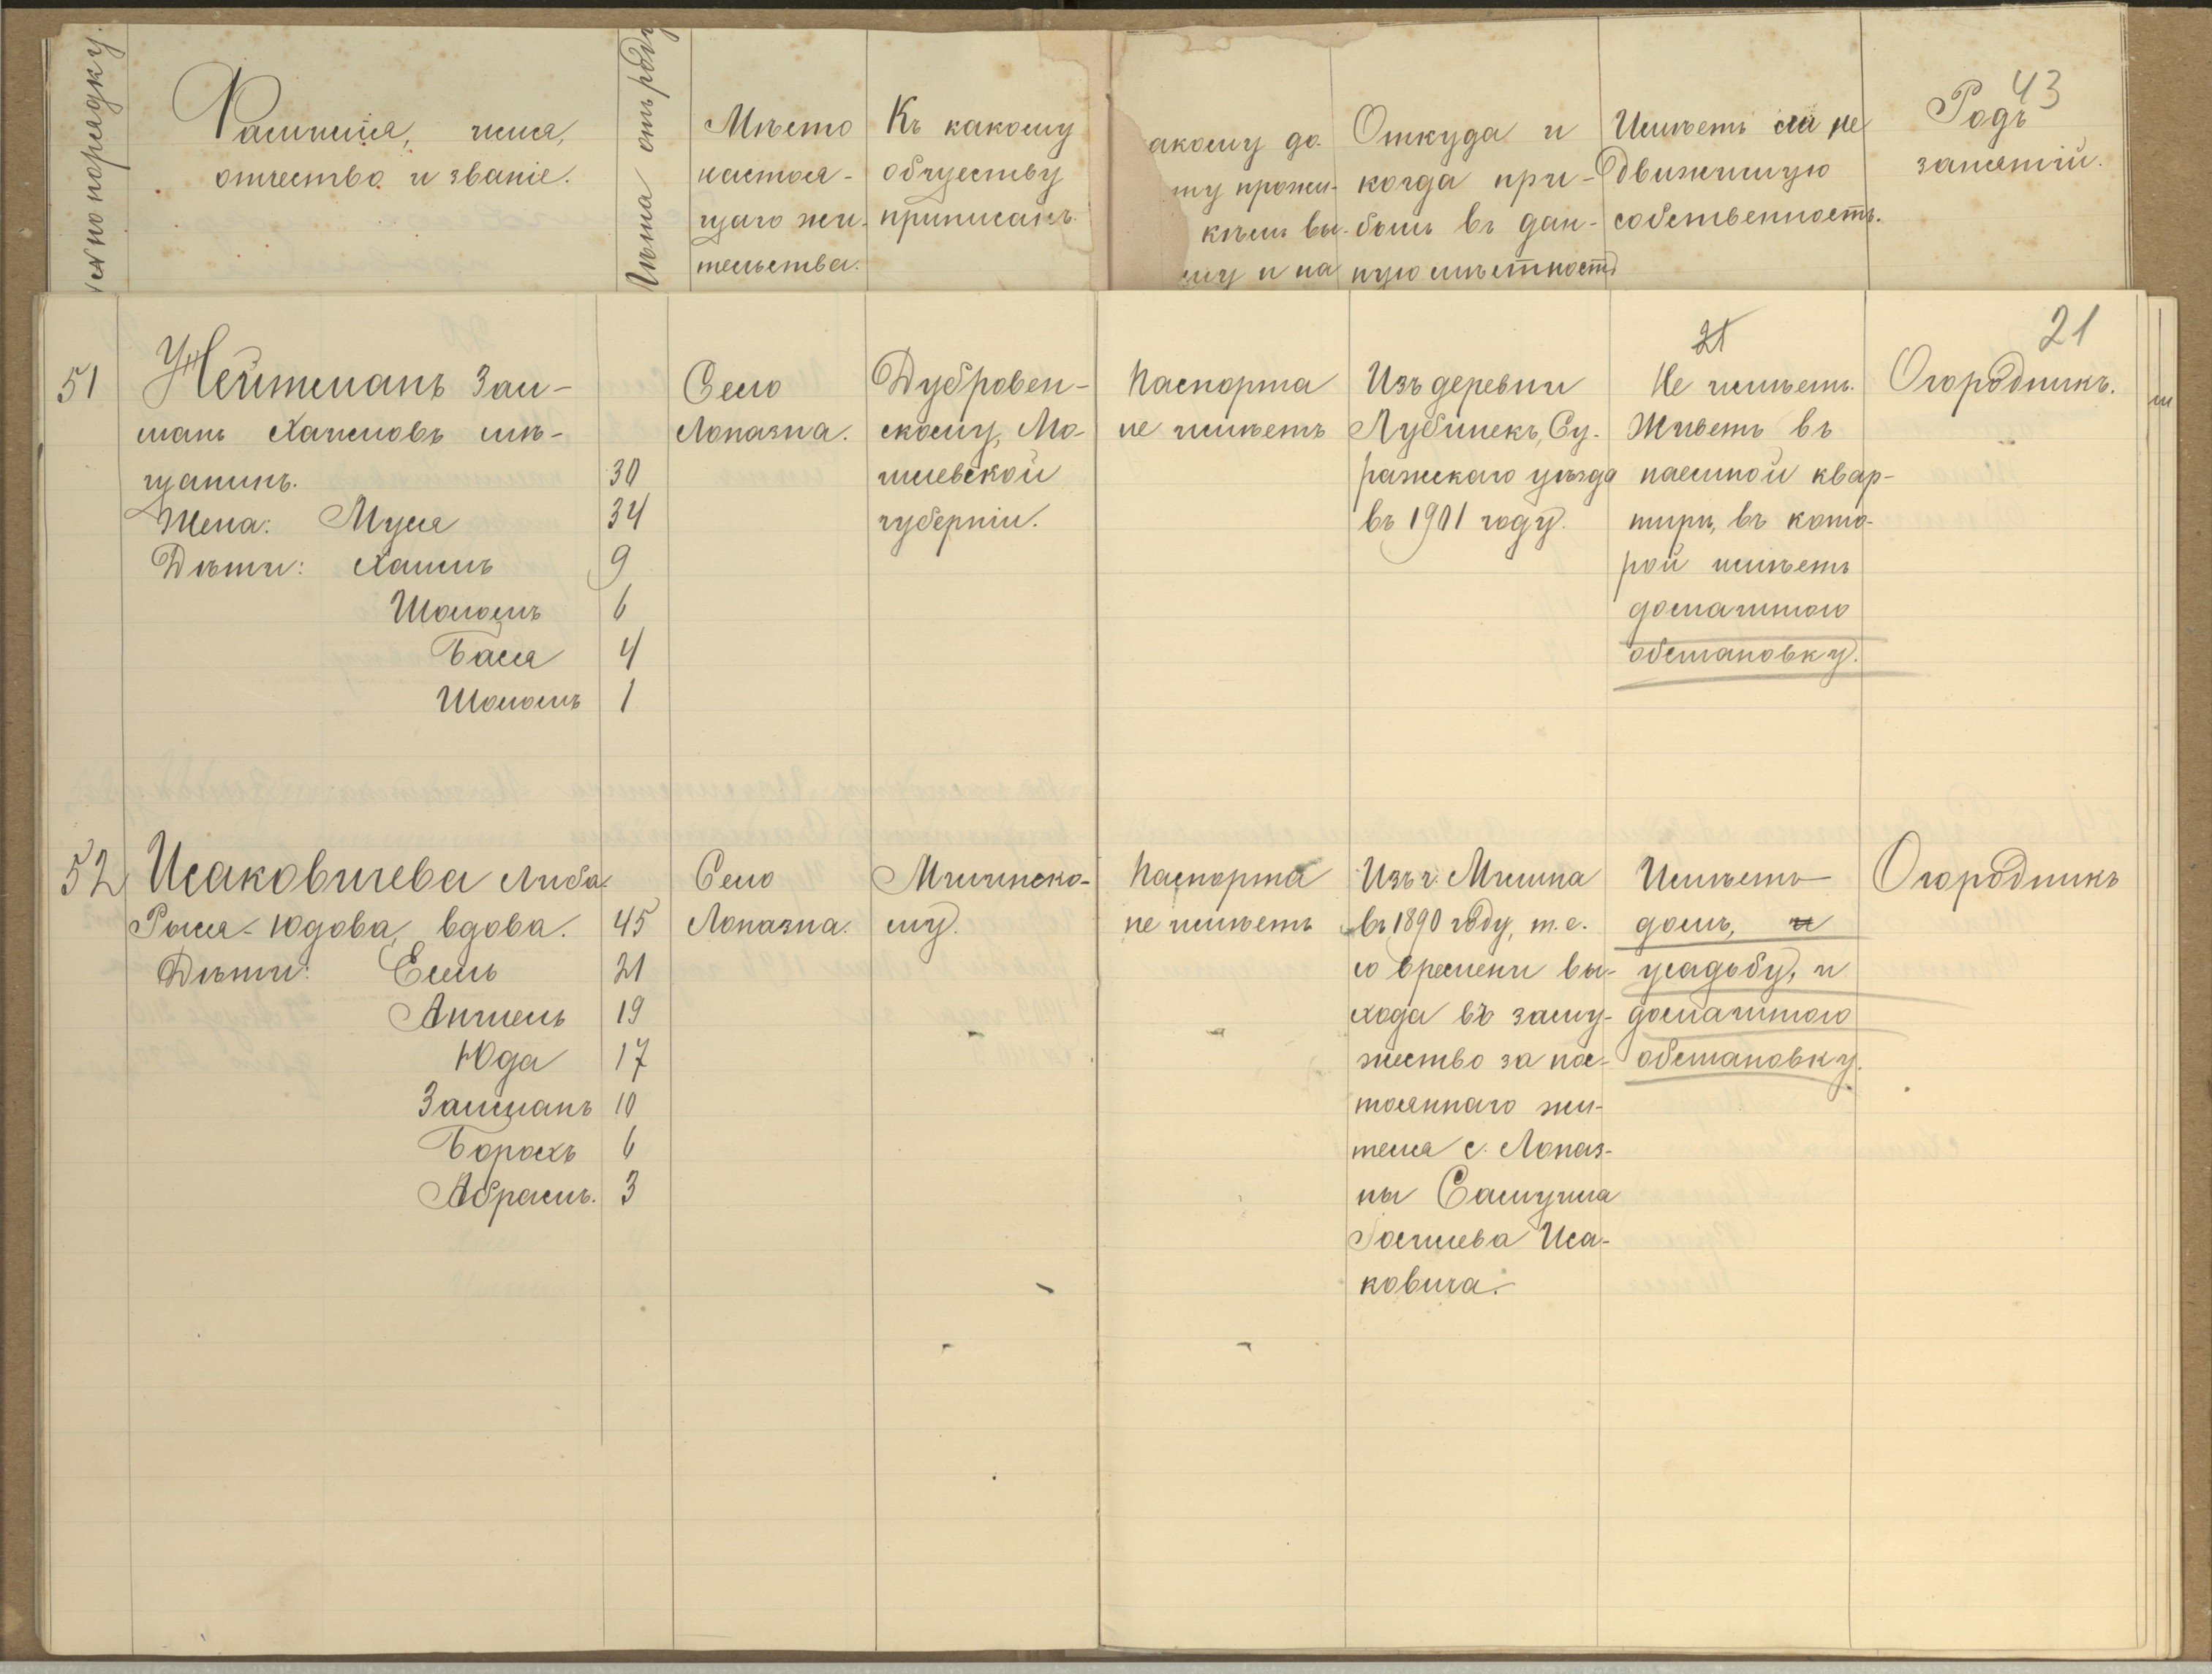 43
№ по порядку.
Фамилія, имя,
отчество и званіе.
Лѣта отъ роду
Мѣсто
настоя-
щаго жи-
тельства.
Къ какому
обществу
приписанъ.
акому до-
ту прожи-
кѣмъ вы-
му и на
Откуда и
когда при-
былъ въ дан-
ную мѣстность
Имѣетъ ли не
движимую
собственность.
Родъ
занятій.
21
21
51
Нейтманъ Зал-
манъ Хаимовъ мѣ-
щанинъ. 30
Жена: Муся 34
Дѣти: Хаимъ 9
Шоломъ 6
Бася 4
Шоломъ 1
Село
Лопазна.
Дубровен-
скому, Мо-
гилевской
губерніи.
Паспорта
не имѣетъ
Изъ деревни
Лубинекъ, Су-
ражскаго уѣзда
въ 1901 году.
Не имѣетъ.
Живетъ въ
наемной квар-
тирѣ, въ кото-
рой имѣетъ
домашнюю
обстановку.
Огородникъ.
52
Исаковичева Либа
Рыся-Юдова, вдова. 45
Дѣти: Есель 21
Анчель 19
Юда 17
Залманъ 10
Борохъ 6
Абрамъ. 3
Село
Лопазна.
Мглинско-
му.
Паспорта
не имѣетъ
Изъ г. Мглина
въ 1890 году, т.е.
со времени вы-
хода въ заму-
жество за пос-
тояннаго жи-
теля с. Лопаз-
ны Самуила
Іоселева Иса-
ковича.
Имѣетъ
домъ, и
усадьбу, и
домашнюю
обстановку.
Огородникъ